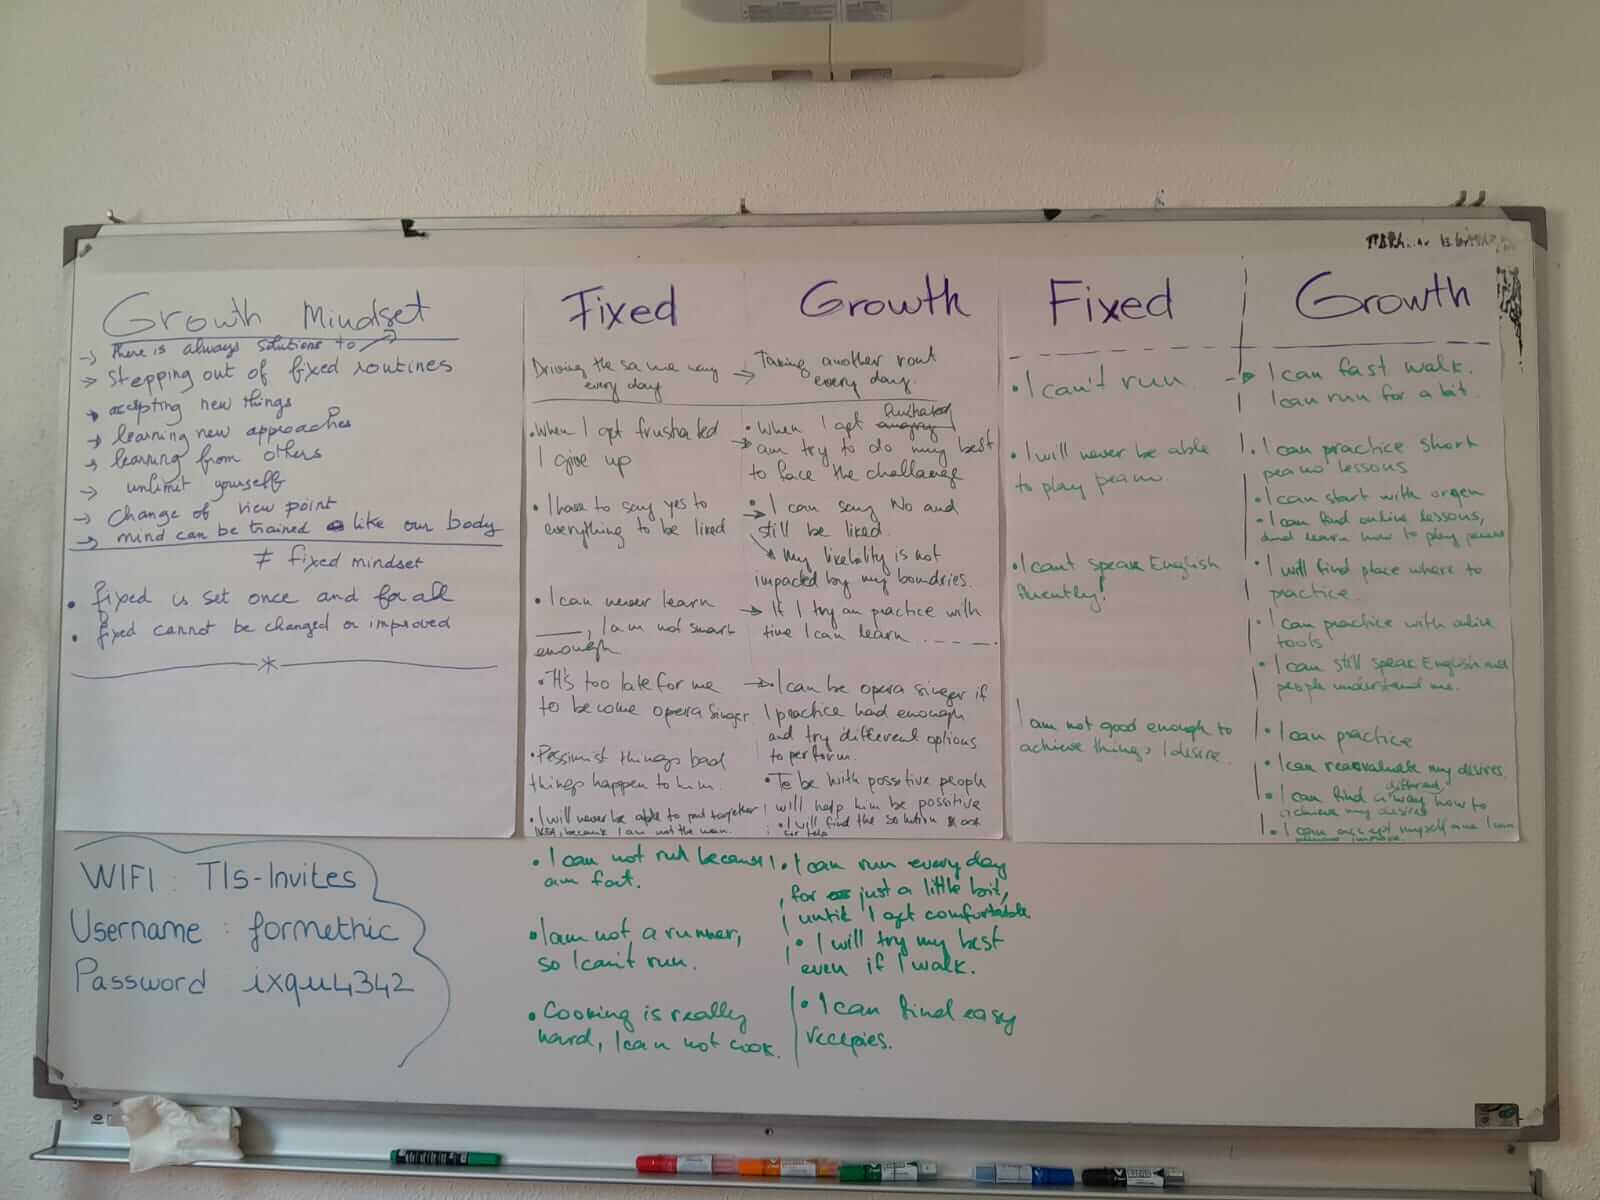 Growth Mindset
→ There is always solutions to ↗
→ Stepping out of fixed routines
→ accepting new things
→ learning new approaches
→ learning from others
→ unlimit yourself
→ change of view point
→ mind can be trained like our body
≠ fixed mindset
• fixed is set once and for all
• fixed cannot be changed or improved
WIFI : TIs-Invites
Username : formethic
Password ixqu4342
Fixed
Growth
Driving the same way → Taking another rout
every day
every day.
• When I get frustrated
I give up
• When I get angry frustrated
→ am try to do my best
to face the challange
• I have to say yes to
everything to be liked
• I can say No and
still be liked.
→ My likability is not
impacted by my boundries.
• I can never learn
____, I am not smart
enough
→ If I try an practice with
time I can learn . _ _ _ .
• It's too late for me
to become opera singer
→ • I can be opera singer if
I practice had enough
and try different options
to perform.
• Pessimist things bad
things happen to him.
• To be with possitive people
will help him be possitive
• I will never be able to put together
IKEA, because I am not the man.
• I will find the solution ask
for help
• I can not run because I
am fat.
• I can run every day
for just a little bit,
until I get comfortable
• I am not a runner,
so I can't run.
• I will try my best
even if I walk.
• Cooking is really
hard, I can not cook.
• I can find easy
reccpies.
Fixed
Growth
• I can't run.
→ I can fast walk.
I can run for a bit.
• I will never be able
to play peano.
• I can practice short
peano lessons
• I can start with orgen
• I can find online lessons,
and learn how to play peano
• I can't speak English
fluently!
• I will find place where to
practice.
• I can practice with online
tools
• I can still speak English and
people understand me.
I am not good enough to
achieve things I desire.
• I can practice
• I can reavaluate my desires.
• I can find a different way how to
achieve my desires
• I can accept myself and I can
improve